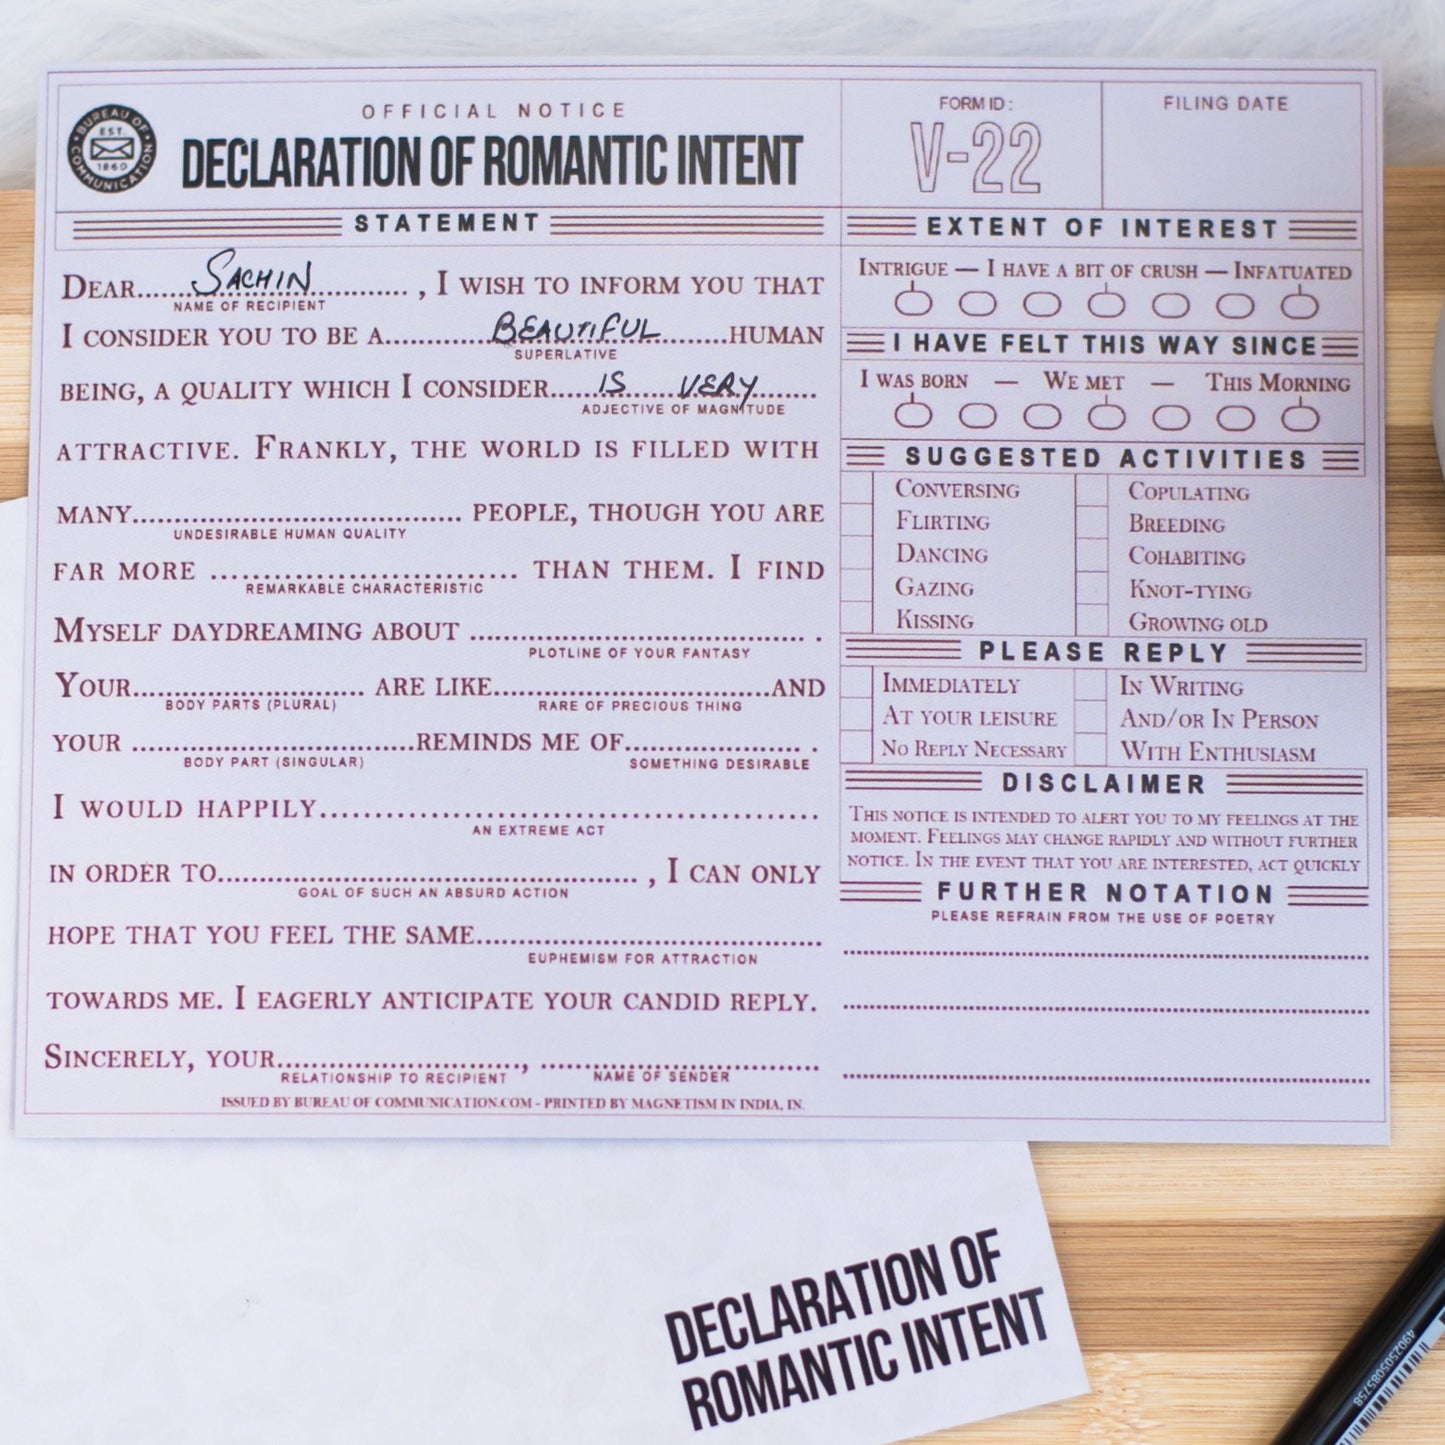 BUREAU OF COMMUNICATION
EST.
1860
OFFICIAL NOTICE
DECLARATION OF ROMANTIC INTENT
FORM ID:
V-22
FILING DATE
STATEMENT
DEAR.....SACHIN.........., I WISH TO INFORM YOU THAT
NAME OF RECIPIENT
I CONSIDER YOU TO BE A..........BEAUTIFUL........HUMAN
SUPERLATIVE
BEING, A QUALITY WHICH I CONSIDER.....IS VERY.......
ADJECTIVE OF MAGNITUDE
ATTRACTIVE. FRANKLY, THE WORLD IS FILLED WITH
MANY.................... PEOPLE, THOUGH YOU ARE
UNDESIRABLE HUMAN QUALITY
FAR MORE .................... THAN THEM. I FIND
REMARKABLE CHARACTERISTIC
MYSELF DAYDREAMING ABOUT .................... .
PLOTLINE OF YOUR FANTASY
YOUR.................... ARE LIKE....................AND
BODY PARTS (PLURAL) RARE OF PRECIOUS THING
YOUR ....................REMINDS ME OF.................... .
BODY PART (SINGULAR) SOMETHING DESIRABLE
I WOULD HAPPILY....................
AN EXTREME ACT
IN ORDER TO.................... , I CAN ONLY
GOAL OF SUCH AN ABSURD ACTION
HOPE THAT YOU FEEL THE SAME....................
EUPHEMISM FOR ATTRACTION
TOWARDS ME. I EAGERLY ANTICIPATE YOUR CANDID REPLY.
SINCERELY, YOUR...................., ....................
RELATIONSHIP TO RECIPIENT NAME OF SENDER
ISSUED BY BUREAU OF COMMUNICATION.COM - PRINTED BY MAGNETISM IN INDIA, IN.
EXTENT OF INTEREST
INTRIGUE — I HAVE A BIT OF CRUSH — INFATUATED
I HAVE FELT THIS WAY SINCE
I WAS BORN — WE MET — THIS MORNING
SUGGESTED ACTIVITIES
CONVERSING COPULATING
FLIRTING BREEDING
DANCING COHABITING
GAZING KNOT-TYING
KISSING GROWING OLD
PLEASE REPLY
IMMEDIATELY IN WRITING
AT YOUR LEISURE AND/OR IN PERSON
NO REPLY NECESSARY WITH ENTHUSIASM
DISCLAIMER
THIS NOTICE IS INTENDED TO ALERT YOU TO MY FEELINGS AT THE
MOMENT. FEELINGS MAY CHANGE RAPIDLY AND WITHOUT FURTHER
NOTICE. IN THE EVENT THAT YOU ARE INTERESTED, ACT QUICKLY
FURTHER NOTATION
PLEASE REFRAIN FROM THE USE OF POETRY
DECLARATION OF
ROMANTIC INTENT
4902505085758